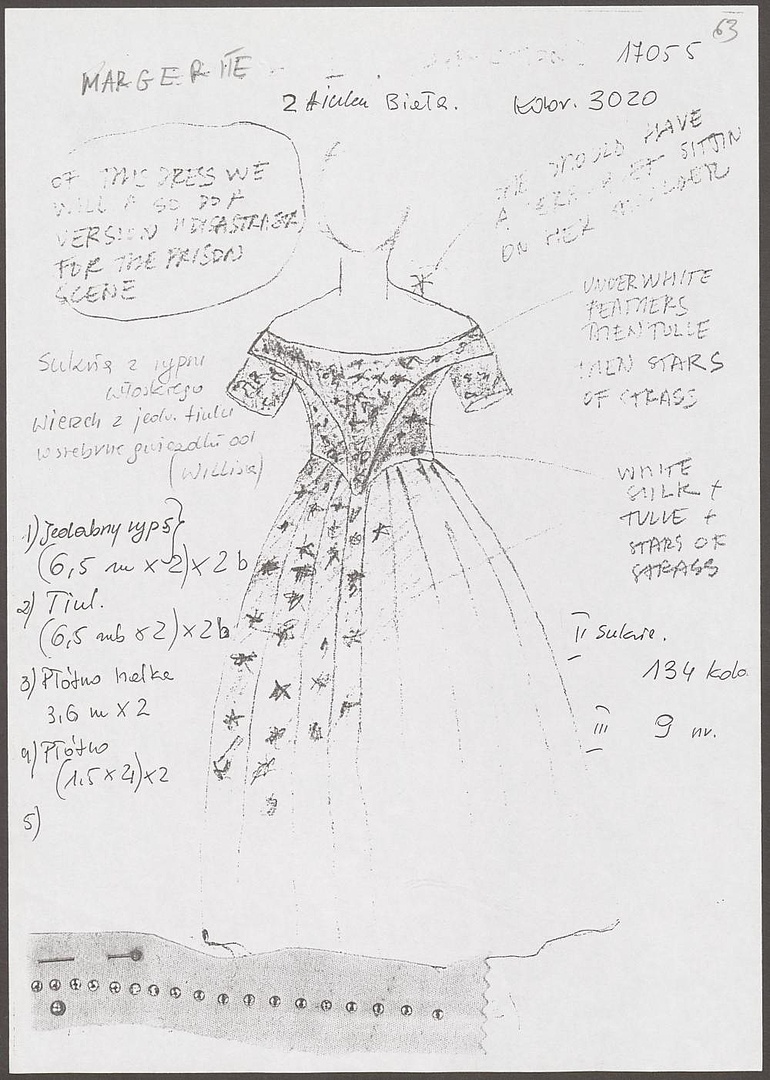 63
MARGERITE
17055
2 Biała. Kolor. 3020
OF THIS DRESS WE
WILL DO
VERSION
FOR THE PRISON
SCENE
SHOULD HAVE
A SITTIN
ON HER SHOULDER
UNDER WHITE
FEATHERS
THEN TULLE
THEN STARS
OF STRASS
Suknia z rypsu
włoskiego
wierzch z jedw. tiulu
w srebrne gwiazdki od
(Willisa)
WHITE
SILK +
TULLE +
STARS OF
STRASS
1) Jedwabny ryps}
(6,5 m x 2) x 2 b
2) Tiul.
(6,5 mb x 2) x 2b
3) Płótno halka
3,6 m x 2
4) Płótno
(1.5 x 4) x 2
5)
II Suknie.
134 kolo.
III 9 nr.